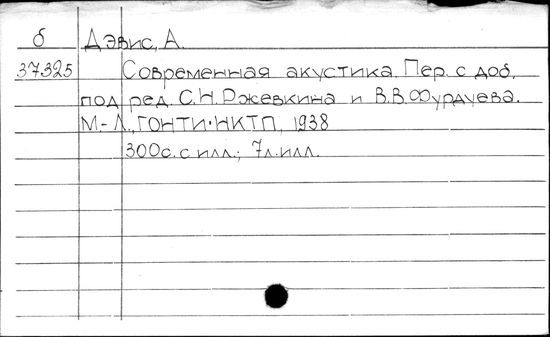 б Дэвис, А.
37325 Современная акустика. Пер. с доб.
под ред. С.Н.Ржевкина и В.В.Фурдуева.
М.-Л., ГОНТИ·НКТП, 1938
300с. с илл.; 7л.илл.